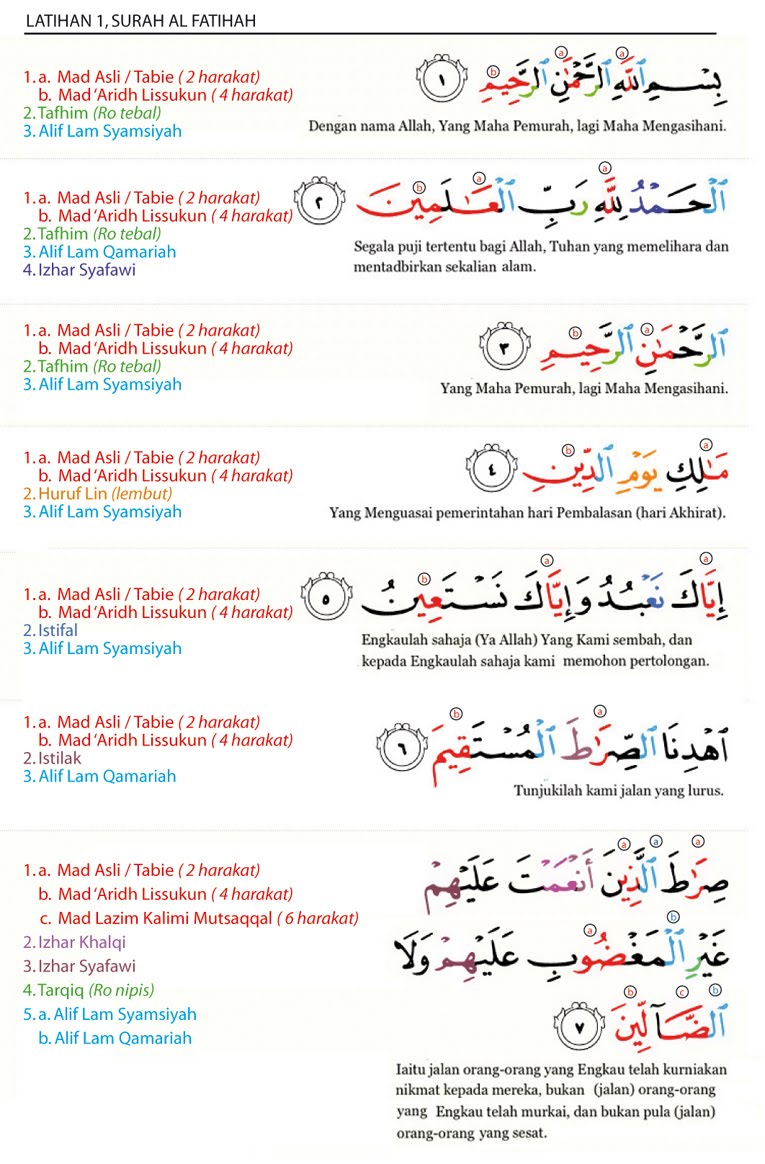 LATIHAN 1, SURAH AL FATIHAH
1. a. Mad Asli / Tabie ( 2 harakat)
b. Mad 'Aridh Lissukun ( 4 harakat)
2. Tafhim (Ro tebal)
3. Alif Lam Syamsiyah
a a b
بِسْمِ ٱللَّهِ ٱلرَّحْمَٰنِ ٱلرَّحِيمِ ١
Dengan nama Allah, Yang Maha Pemurah, lagi Maha Mengasihani.
1. a. Mad Asli / Tabie ( 2 harakat)
b. Mad 'Aridh Lissukun ( 4 harakat)
2. Tafhim (Ro tebal)
3. Alif Lam Qamariah
4. Izhar Syafawi
a a b
ٱلْحَمْدُ لِلَّهِ رَبِّ ٱلْعَٰلَمِينَ ٢
Segala puji tertentu bagi Allah, Tuhan yang memelihara dan
mentadbirkan sekalian alam.
1. a. Mad Asli / Tabie ( 2 harakat)
b. Mad 'Aridh Lissukun ( 4 harakat)
2. Tafhim (Ro tebal)
3. Alif Lam Syamsiyah
a b
ٱلرَّحْمَٰنِ ٱلرَّحِيمِ ٣
Yang Maha Pemurah, lagi Maha Mengasihani.
1. a. Mad Asli / Tabie ( 2 harakat)
b. Mad 'Aridh Lissukun ( 4 harakat)
2. Huruf Lin (lembut)
3. Alif Lam Syamsiyah
a b
مَٰلِكِ يَوْمِ ٱلدِّينِ ٤
Yang Menguasai pemerintahan hari Pembalasan (hari Akhirat).
1. a. Mad Asli / Tabie ( 2 harakat)
b. Mad 'Aridh Lissukun ( 4 harakat)
2. Istifal
3. Alif Lam Syamsiyah
a a b
إِيَّاكَ نَعْبُدُ وَإِيَّاكَ نَسْتَعِينُ ٥
Engkaulah sahaja (Ya Allah) Yang Kami sembah, dan
kepada Engkaulah sahaja kami memohon pertolongan.
1. a. Mad Asli / Tabie ( 2 harakat)
b. Mad 'Aridh Lissukun ( 4 harakat)
2. Istilak
3. Alif Lam Qamariah
a b
ٱهْدِنَا ٱلصِّرَٰطَ ٱلْمُسْتَقِيمَ ٦
Tunjukilah kami jalan yang lurus.
1. a. Mad Asli / Tabie ( 2 harakat)
b. Mad 'Aridh Lissukun ( 4 harakat)
c. Mad Lazim Kalimi Mutsaqqal ( 6 harakat)
2. Izhar Khalqi
3. Izhar Syafawi
4. Tarqiq (Ro nipis)
5. a. Alif Lam Syamsiyah
b. Alif Lam Qamariah
a a a
صِرَٰطَ ٱلَّذِينَ أَنْعَمْتَ عَلَيْهِمْ
b a
غَيْرِ ٱلْمَغْضُوبِ عَلَيْهِمْ وَلَا
b c b
ٱلضَّآلِّينَ ٧
Iaitu jalan orang-orang yang Engkau telah kurniakan
nikmat kepada mereka, bukan (jalan) orang-orang
yang Engkau telah murkai, dan bukan pula (jalan)
orang-orang yang sesat.